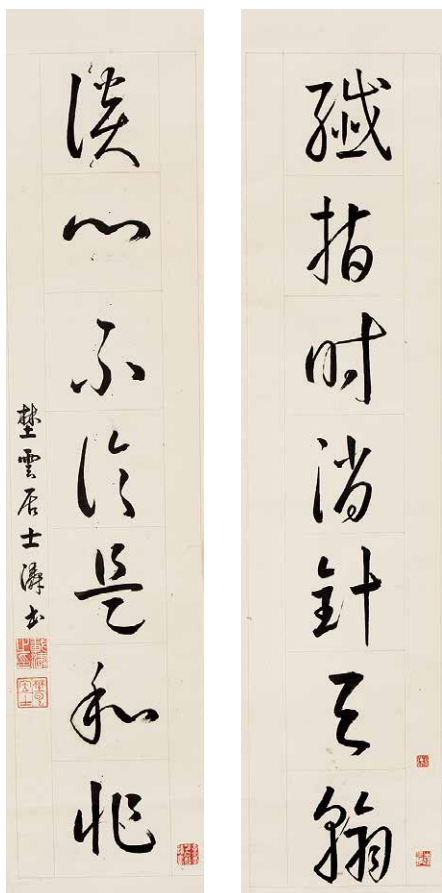 纖指時消針與翰
淡心不論是和非
埜雲居士濤書